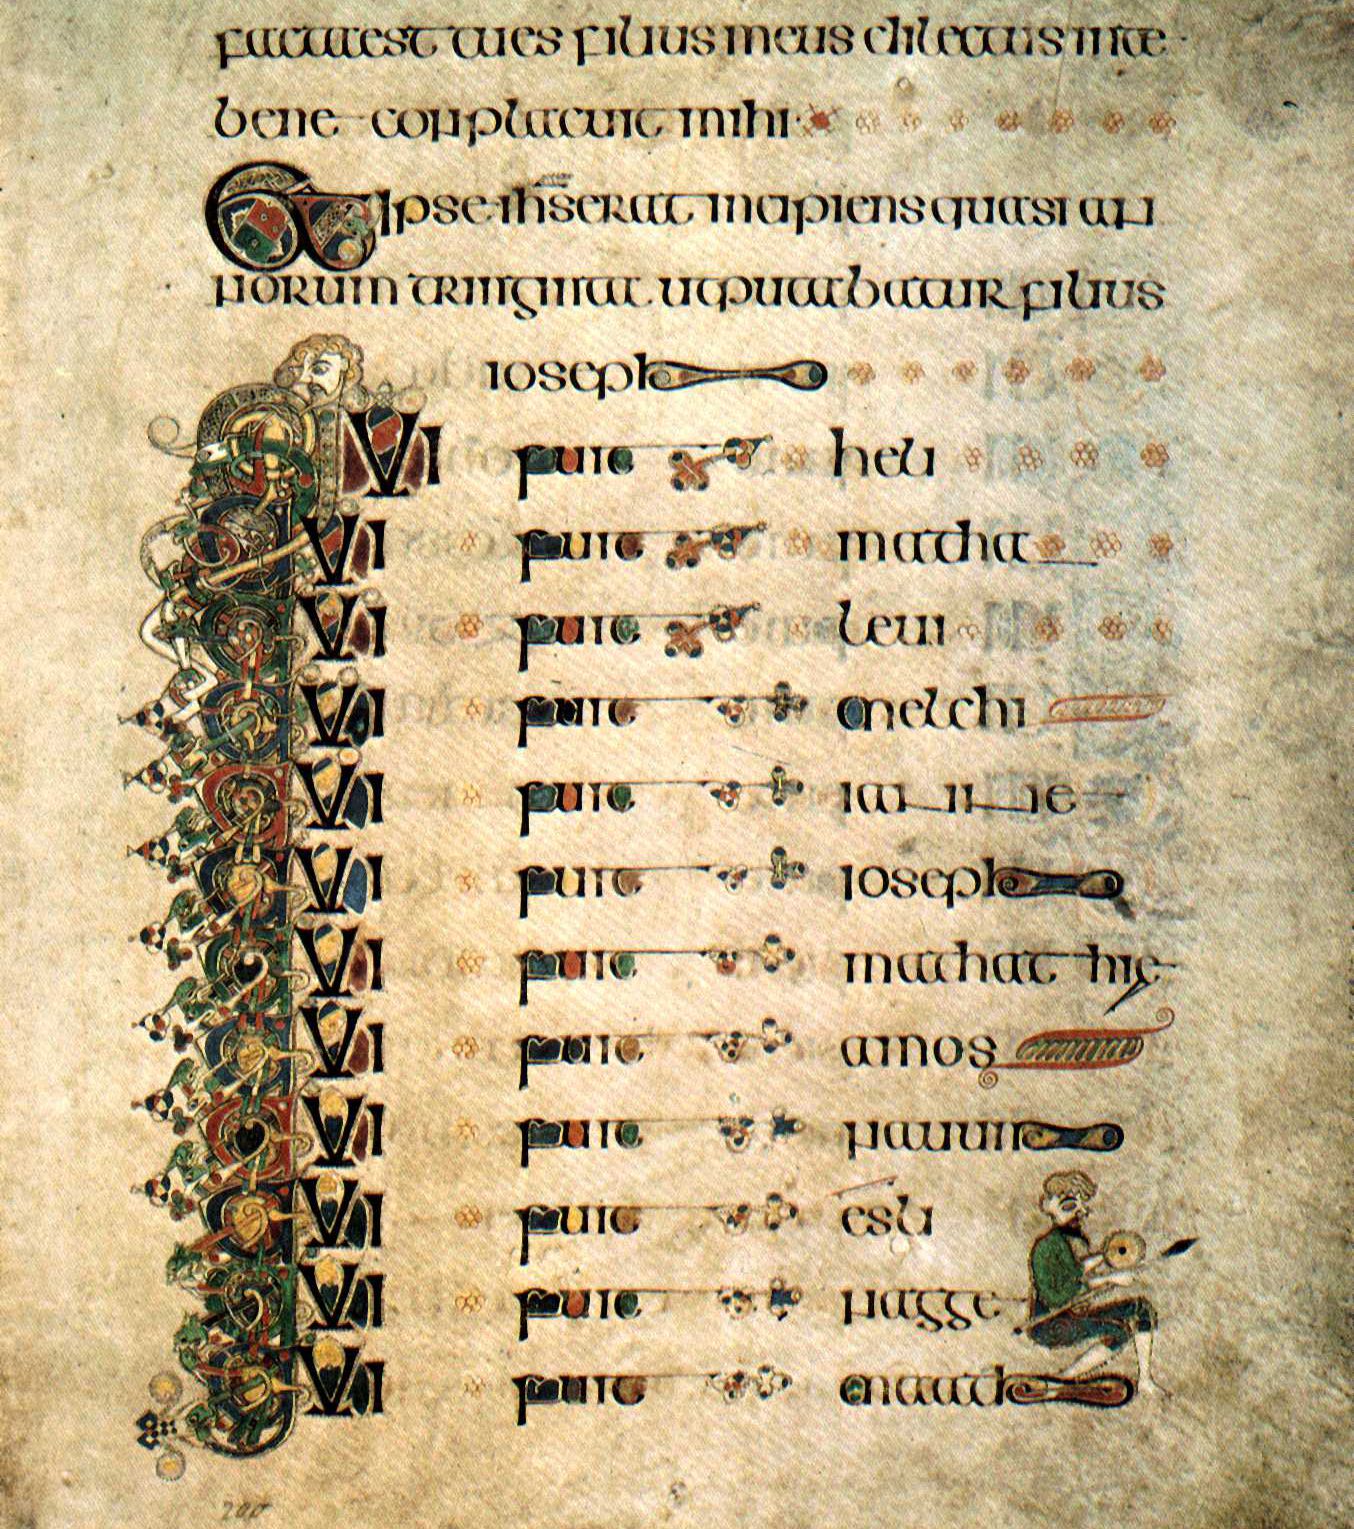 factaest tu es filius meus dilectus in te
bene conplacuit mihi
Et ipse ihs erat incipiens quasi an
norum triginta ut putabatur filius
ioseph
QVI fuit heli
QVI fuit matha
QVI fuit leui
QVI fuit melchi
QVI fuit iannae
QVI fuit ioseph
QVI fuit mathathie
QVI fuit amos
QVI fuit nauum
QVI fuit esli
QVI fuit nagge
QVI fuit maath
200